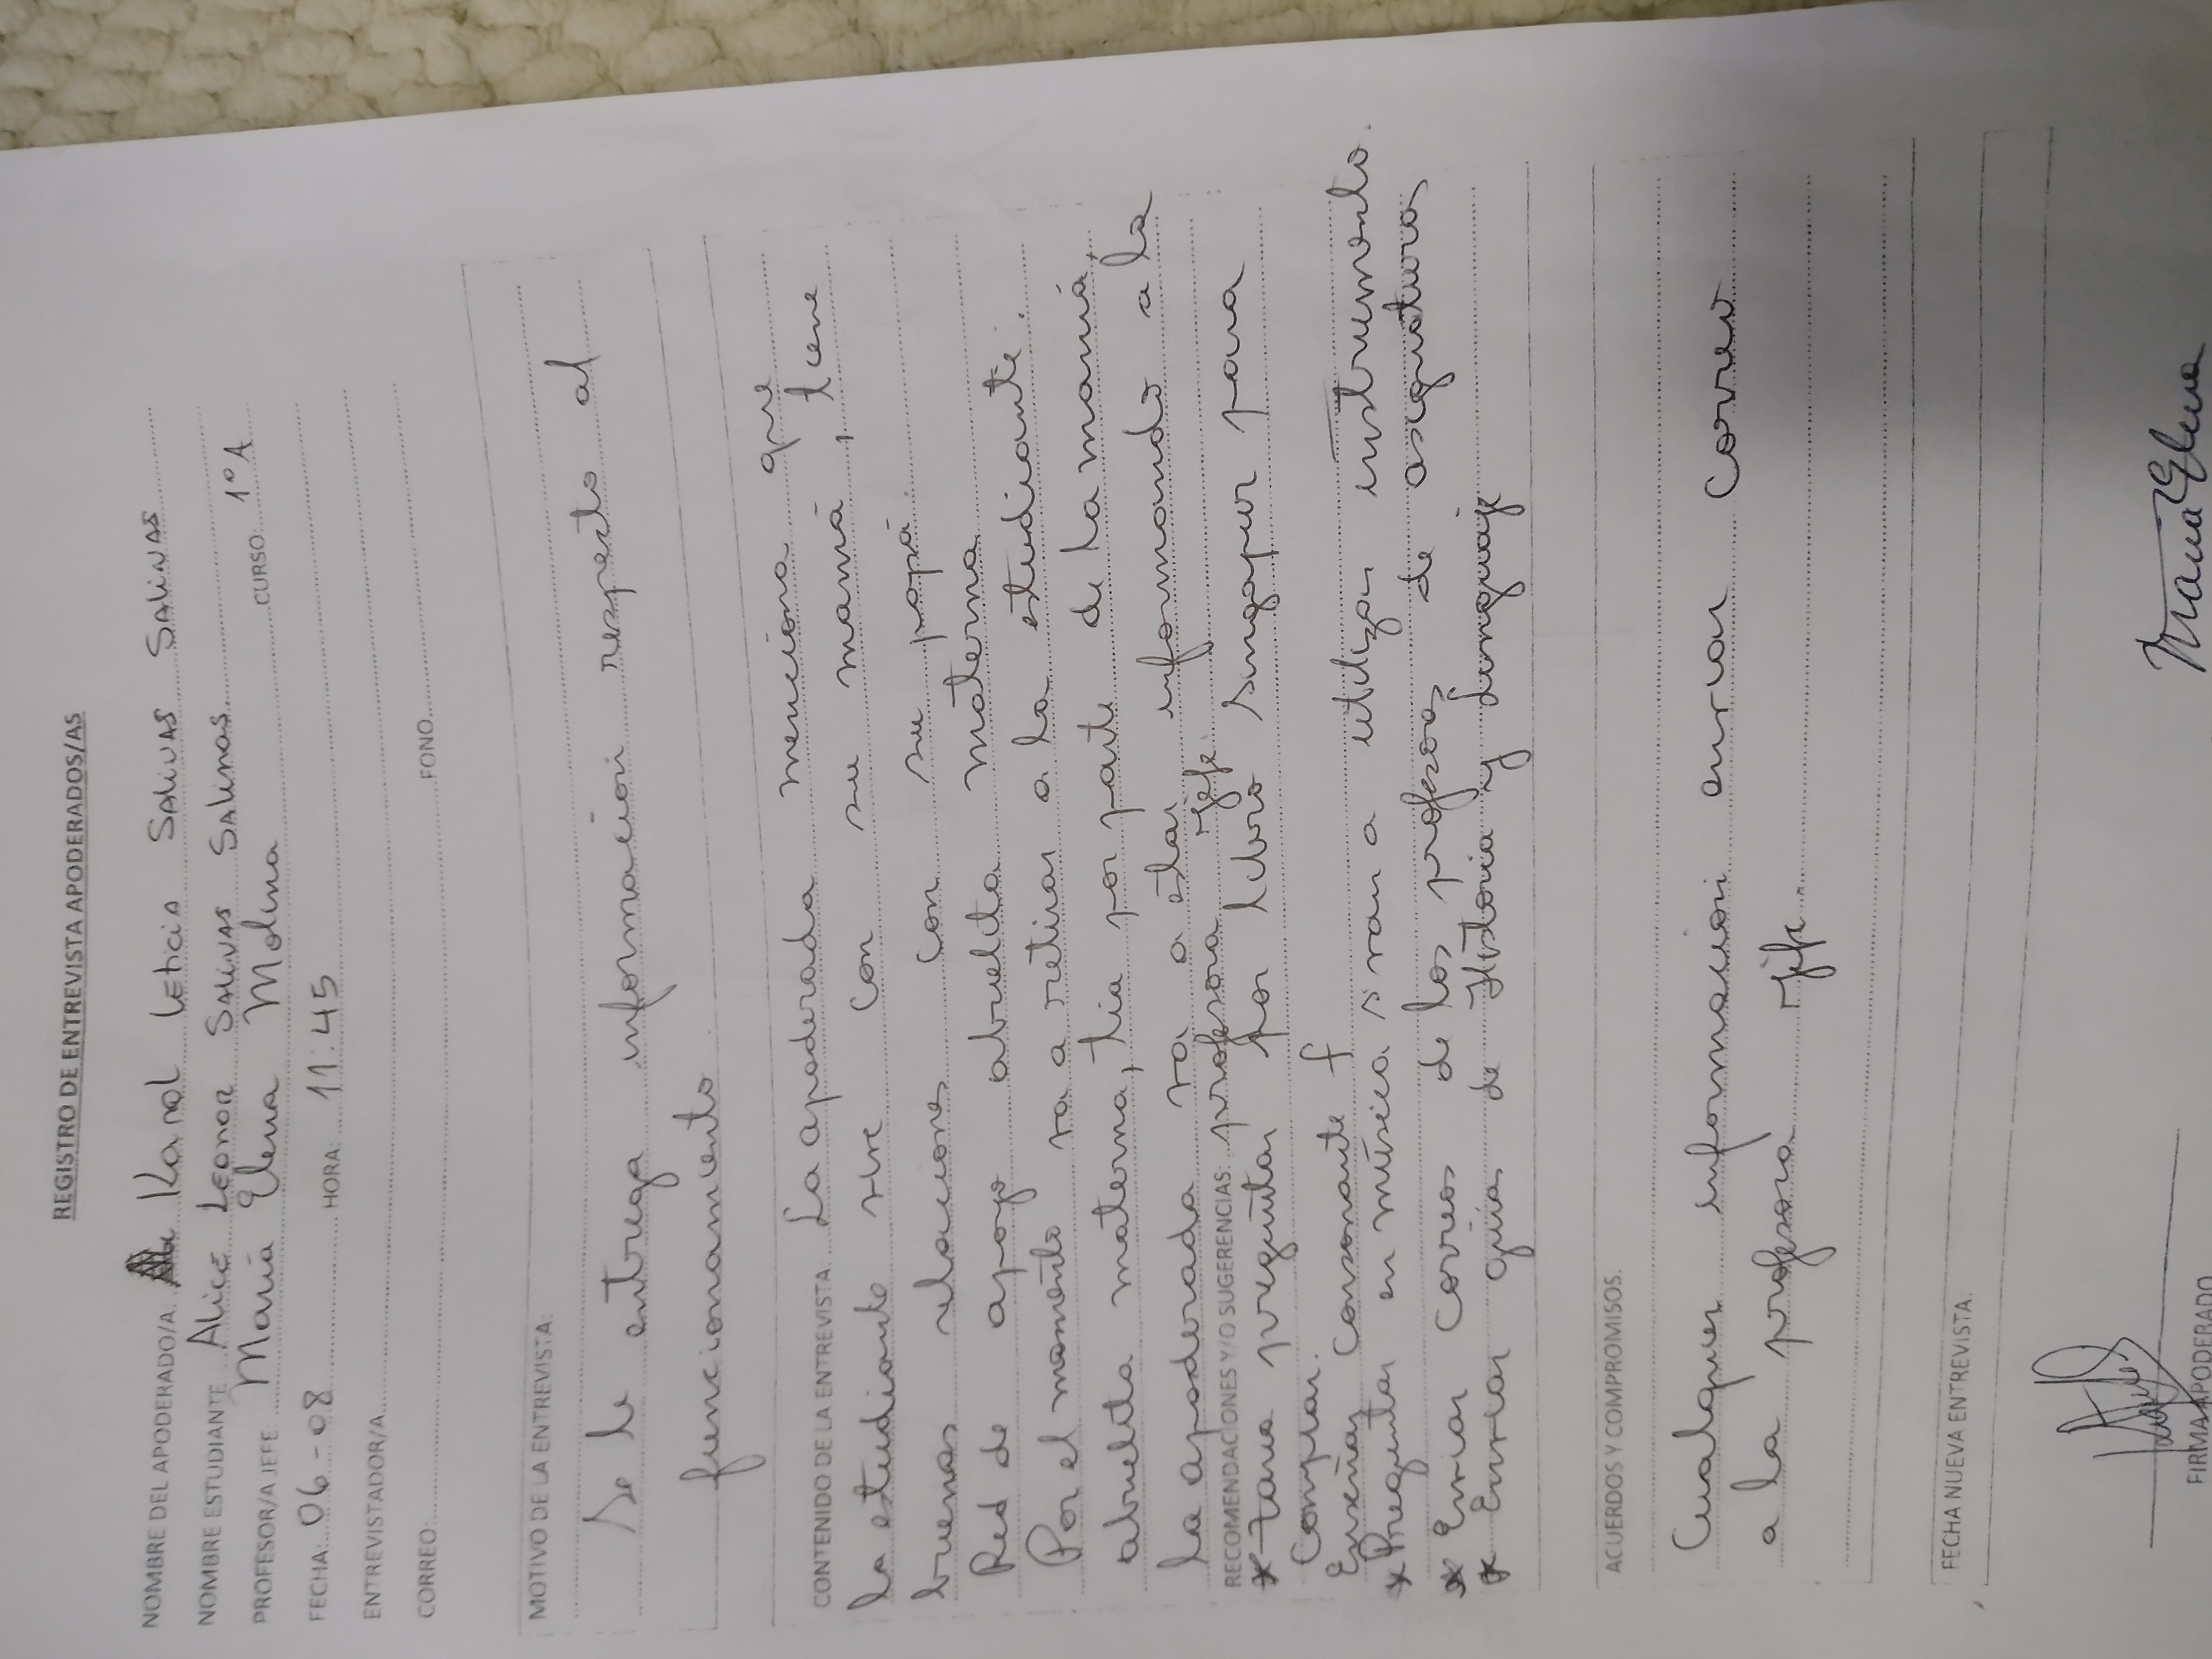 REGISTRO DE ENTREVISTA APODERADOS/AS
NOMBRE DEL APODERADO/A: Karol Leticia Salinas Salinas
NOMBRE ESTUDIANTE Alice Leonor Salinas Salinas
PROFESOR/A JEFE María Elena Molina CURSO: 1°A
FECHA: 06-08 HORA: 11:45
ENTREVISTADOR/A
CORREO: FONO
MOTIVO DE LA ENTREVISTA:
Se le entrega información respecto al
funcionamiento.
CONTENIDO DE LA ENTREVISTA. La apoderada menciona que
la estudiante vive con su mamá, tiene
buenas relaciones con su papá.
Red de apoyo abuelita materna
Por el momento va a retirar a la estudiante:
abuelita materna, tía por parte de la mamá,
la apoderada va a estar informando a la
RECOMENDACIONES Y/O SUGERENCIAS: profesora jefe.
* tana preguntar por libro singapur para
comprar.
Enseñar consonante f
* Preguntar en música si van a utilizar instrumento.
* Enviar correos de los profesores de asignaturas
* Enviar guías de Historia y Lenguaje
ACUERDOS Y COMPROMISOS.
Cualquier información enviar correo
a la profesora jefe.
FECHA NUEVA ENTREVISTA.
FIRMA APODERADO
María Elena